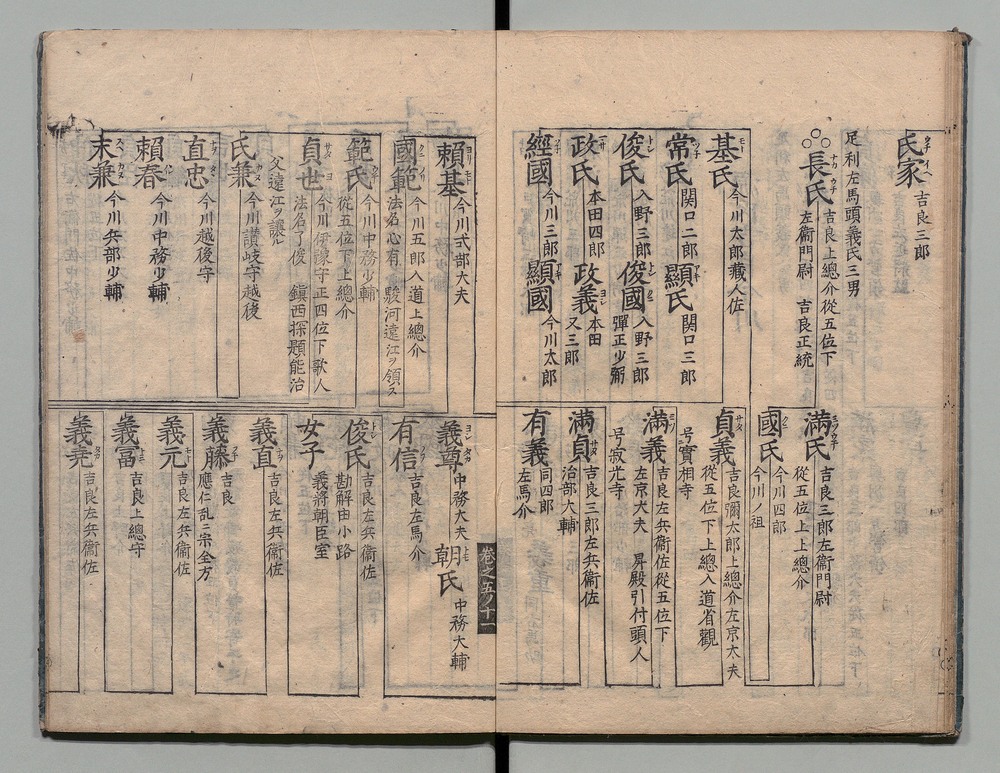 氏家 吉良三郎
足利左馬頭義氏三男
長氏 吉良上總介從五位下
左衞門尉 吉良正統
滿氏 吉良三郎左衞門尉
從五位上上總介
國氏 今川四郎
今川ノ祖
基氏 今川太郎藏人佐
常氏 関口二郎 顯氏 関口三郎
俊氏 入野三郎 俊國 入野三郎
彈正少弼
政氏 本田四郎 政義 本田
又三郎
經國 今川三郎 顯國 今川太郎
貞義 吉良彌太郎上總介左京大夫
從五位下上總入道省觀
号實相寺
滿義 吉良左兵衞佐從五位下
左京大夫 昇殿引付頭人
号寂光寺
滿貞 吉良三郎左兵衞佐
治部大輔
有義 同四郎
左馬介
頼基 今川式部大夫
國範 今川五郎入道上總介
法名心有 駿河遠江ヲ領ス
範氏 今川中務少輔
從五位下上總介
貞世 今川伊豫守正四位下歌人
法名了俊 鎮西探題能治
父遠江ヲ讓ル
氏兼 今川讃岐守越後
直忠 今川越後守
頼春 今川中務少輔
末兼 今川兵部少輔
義尊 中務大夫 朝氏 中務大輔
有信 吉良左馬介
俊氏 吉良左兵衞佐
勘解由小路
女子 義將朝臣室
義直 吉良左兵衞佐
義藤 吉良
應仁乱ニ宗全方
義元 吉良左兵衞佐
義冨 吉良上總守
義尭 吉良左兵衞佐
卷之五ノ十一